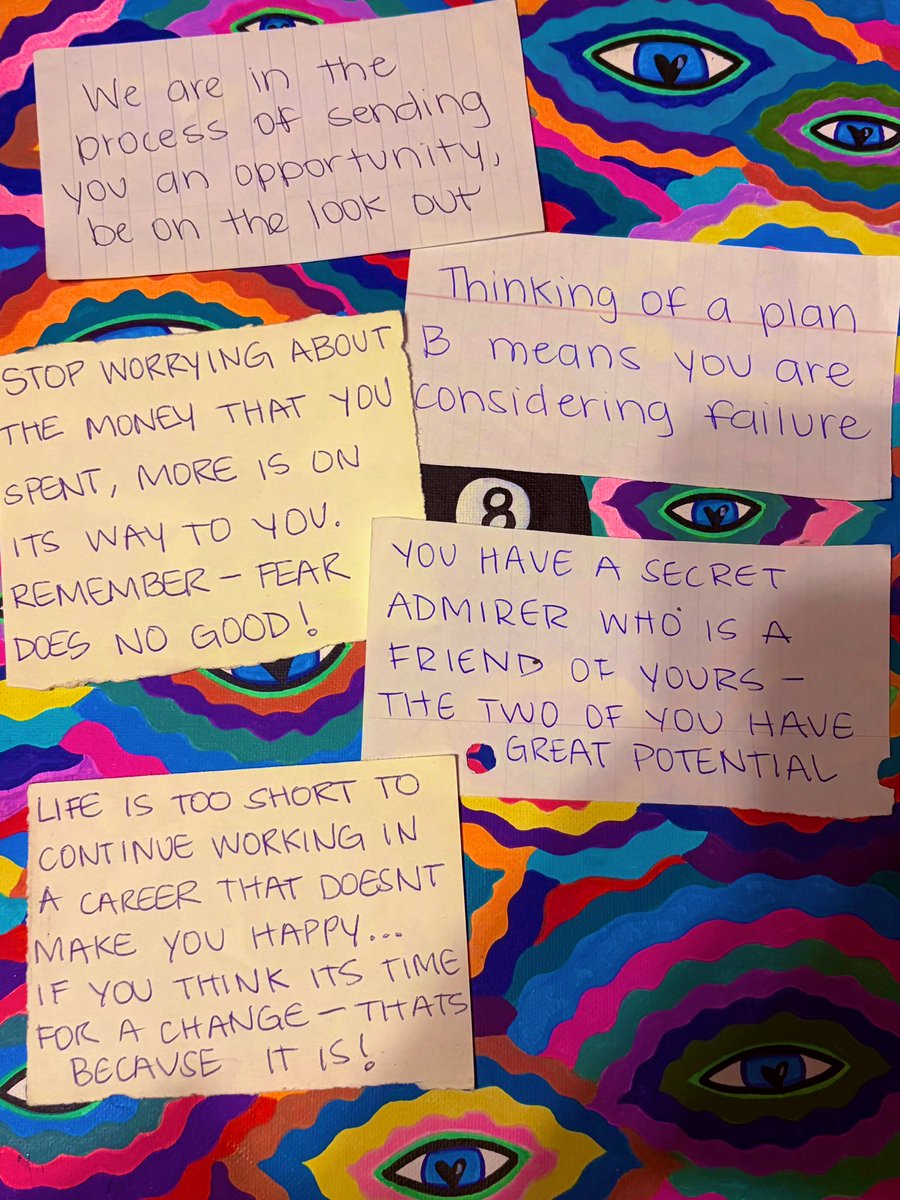 We are in the
process of sending
you an opportunity,
be on the look out
Thinking of a plan
B means you are
considering failure
STOP WORRYING ABOUT
THE MONEY THAT YOU
SPENT, MORE IS ON
ITS WAY TO YOU.
REMEMBER - FEAR
DOES NO GOOD!
8
YOU HAVE A SECRET
ADMIRER WHO IS A
FRIEND OF YOURS -
THE TWO OF YOU HAVE
GREAT POTENTIAL
LIFE IS TOO SHORT TO
CONTINUE WORKING IN
A CAREER THAT DOESNT
MAKE YOU HAPPY...
IF YOU THINK ITS TIME
FOR A CHANGE - THATS
BECAUSE IT IS!